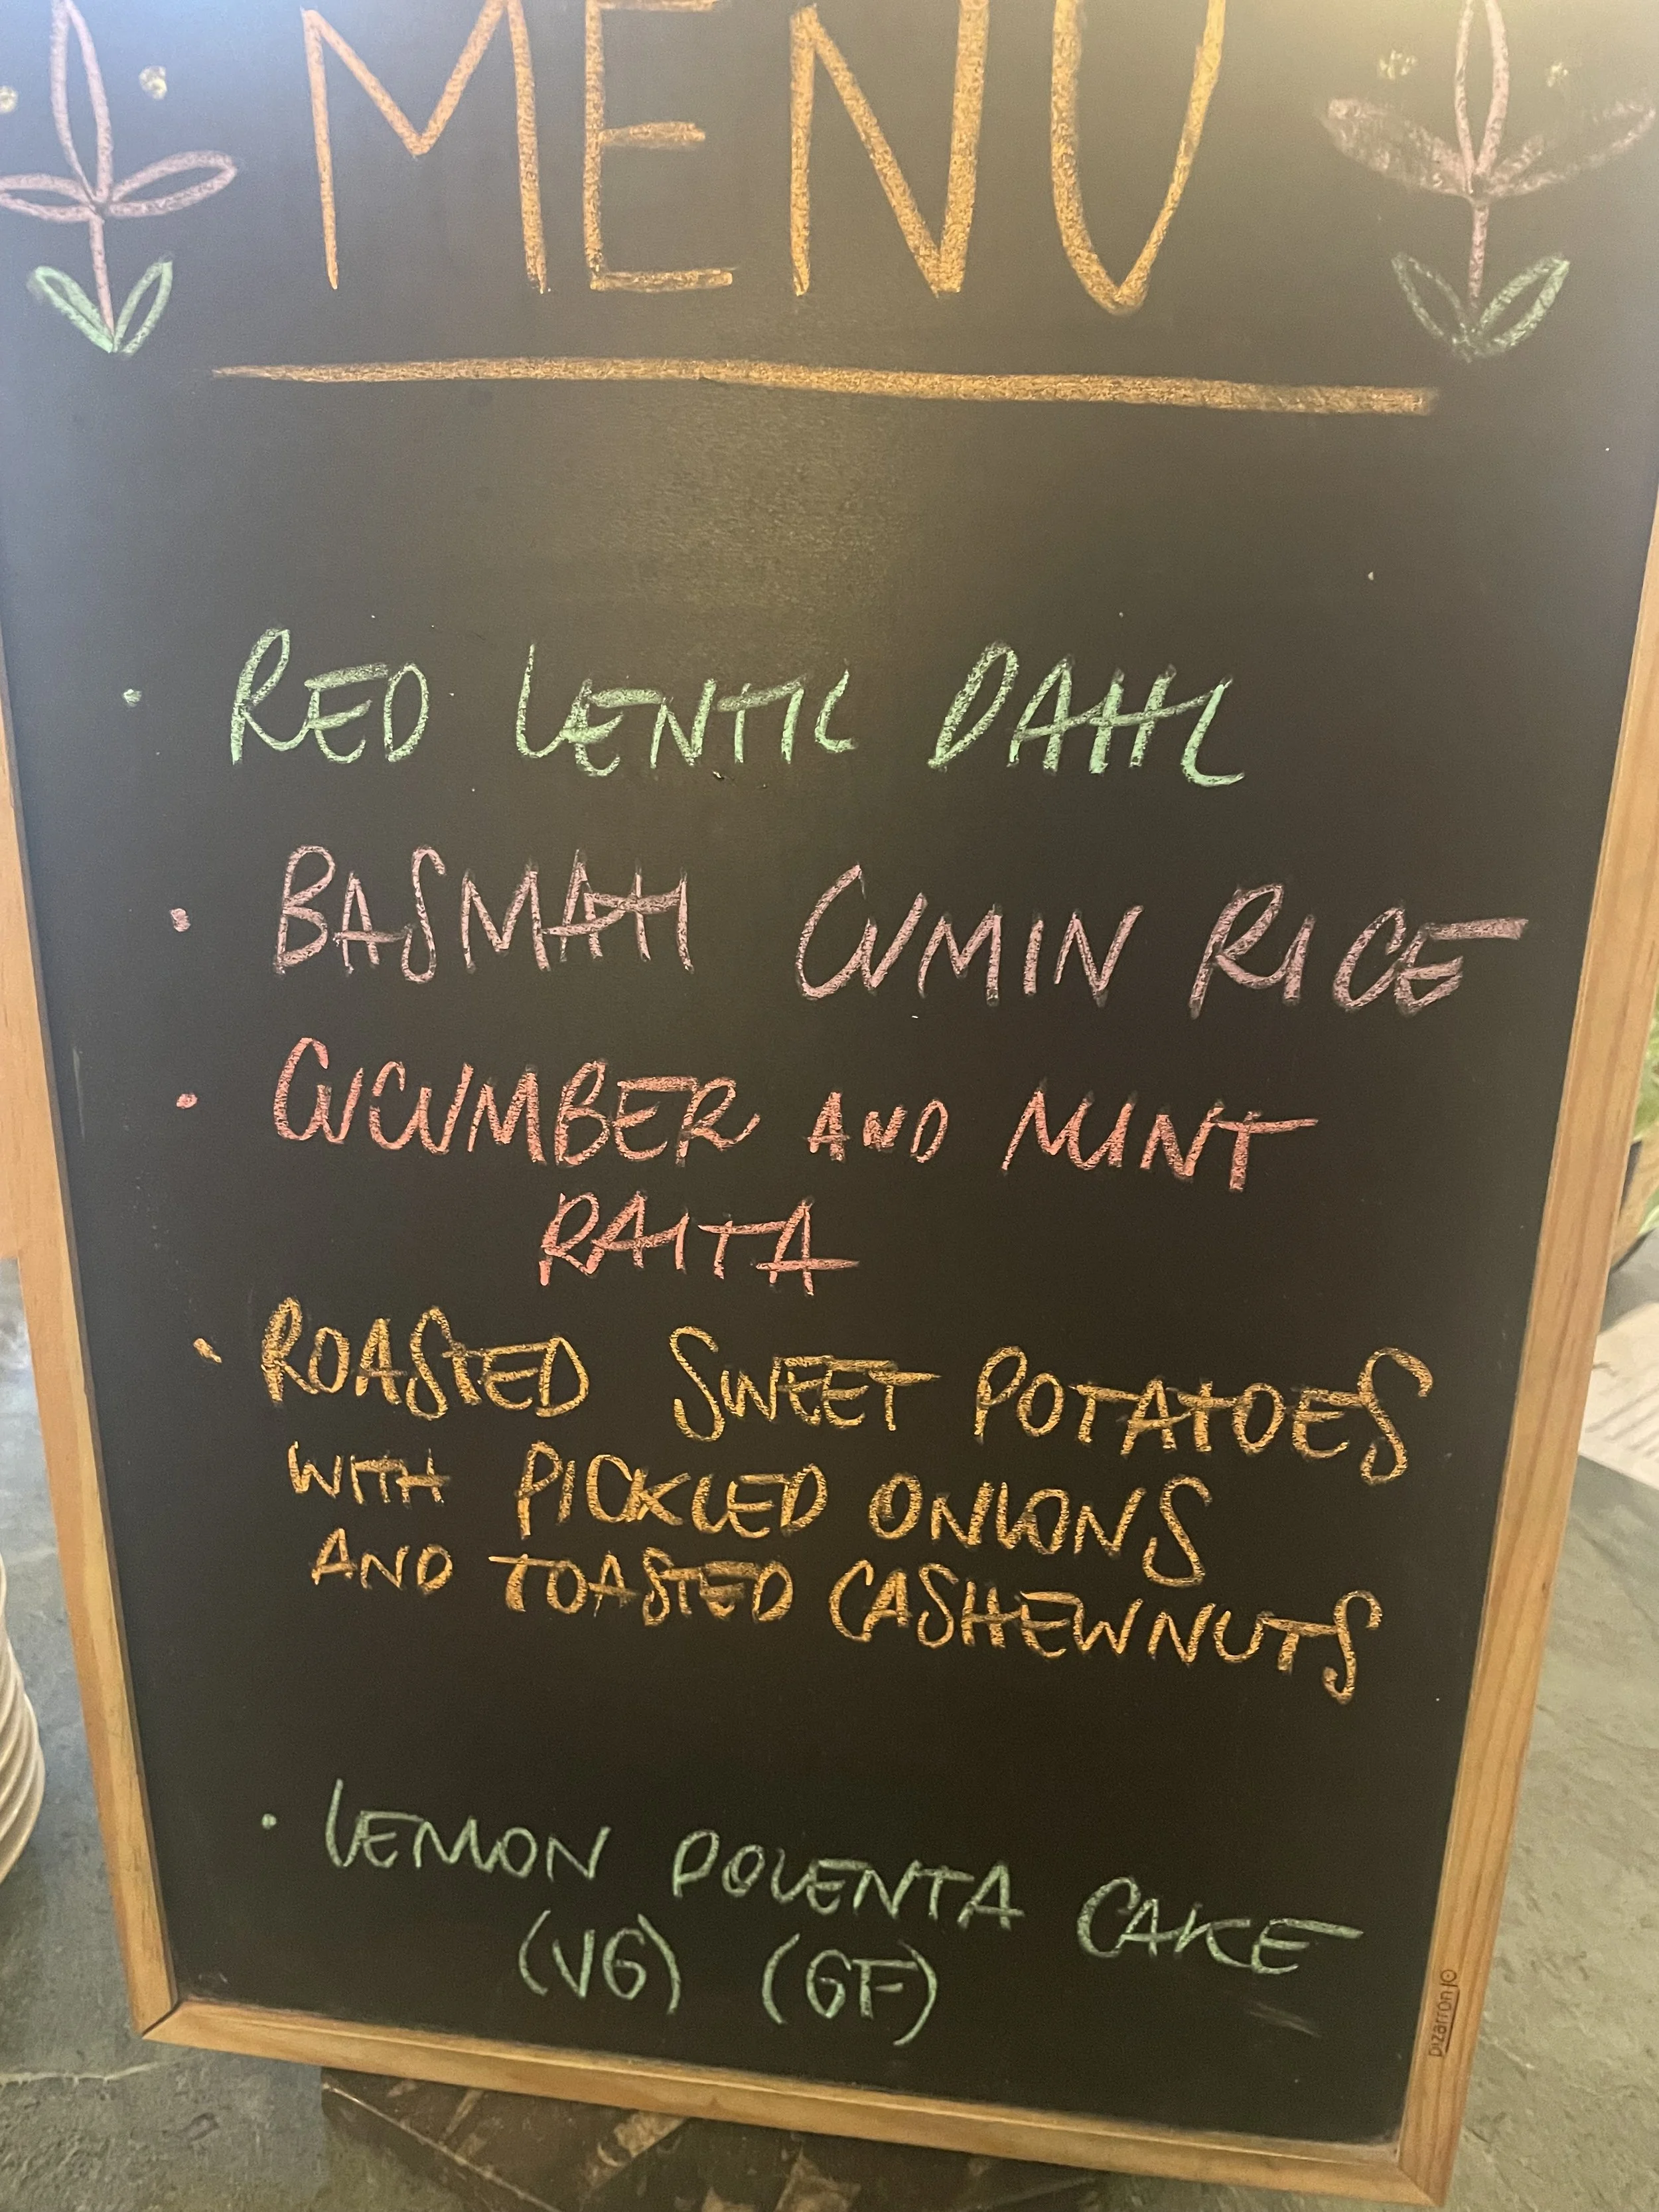 MENU
• RED LENTIL DAHL
• BASMATI CUMIN RICE
• CUCUMBER AND MINT
RAITA
• ROASTED SWEET POTATOES
WITH PICKLED ONIONS
AND TOASTED CASHEWNUTS
• LEMON POLENTA CAKE
(VG) (GF)
pizarron